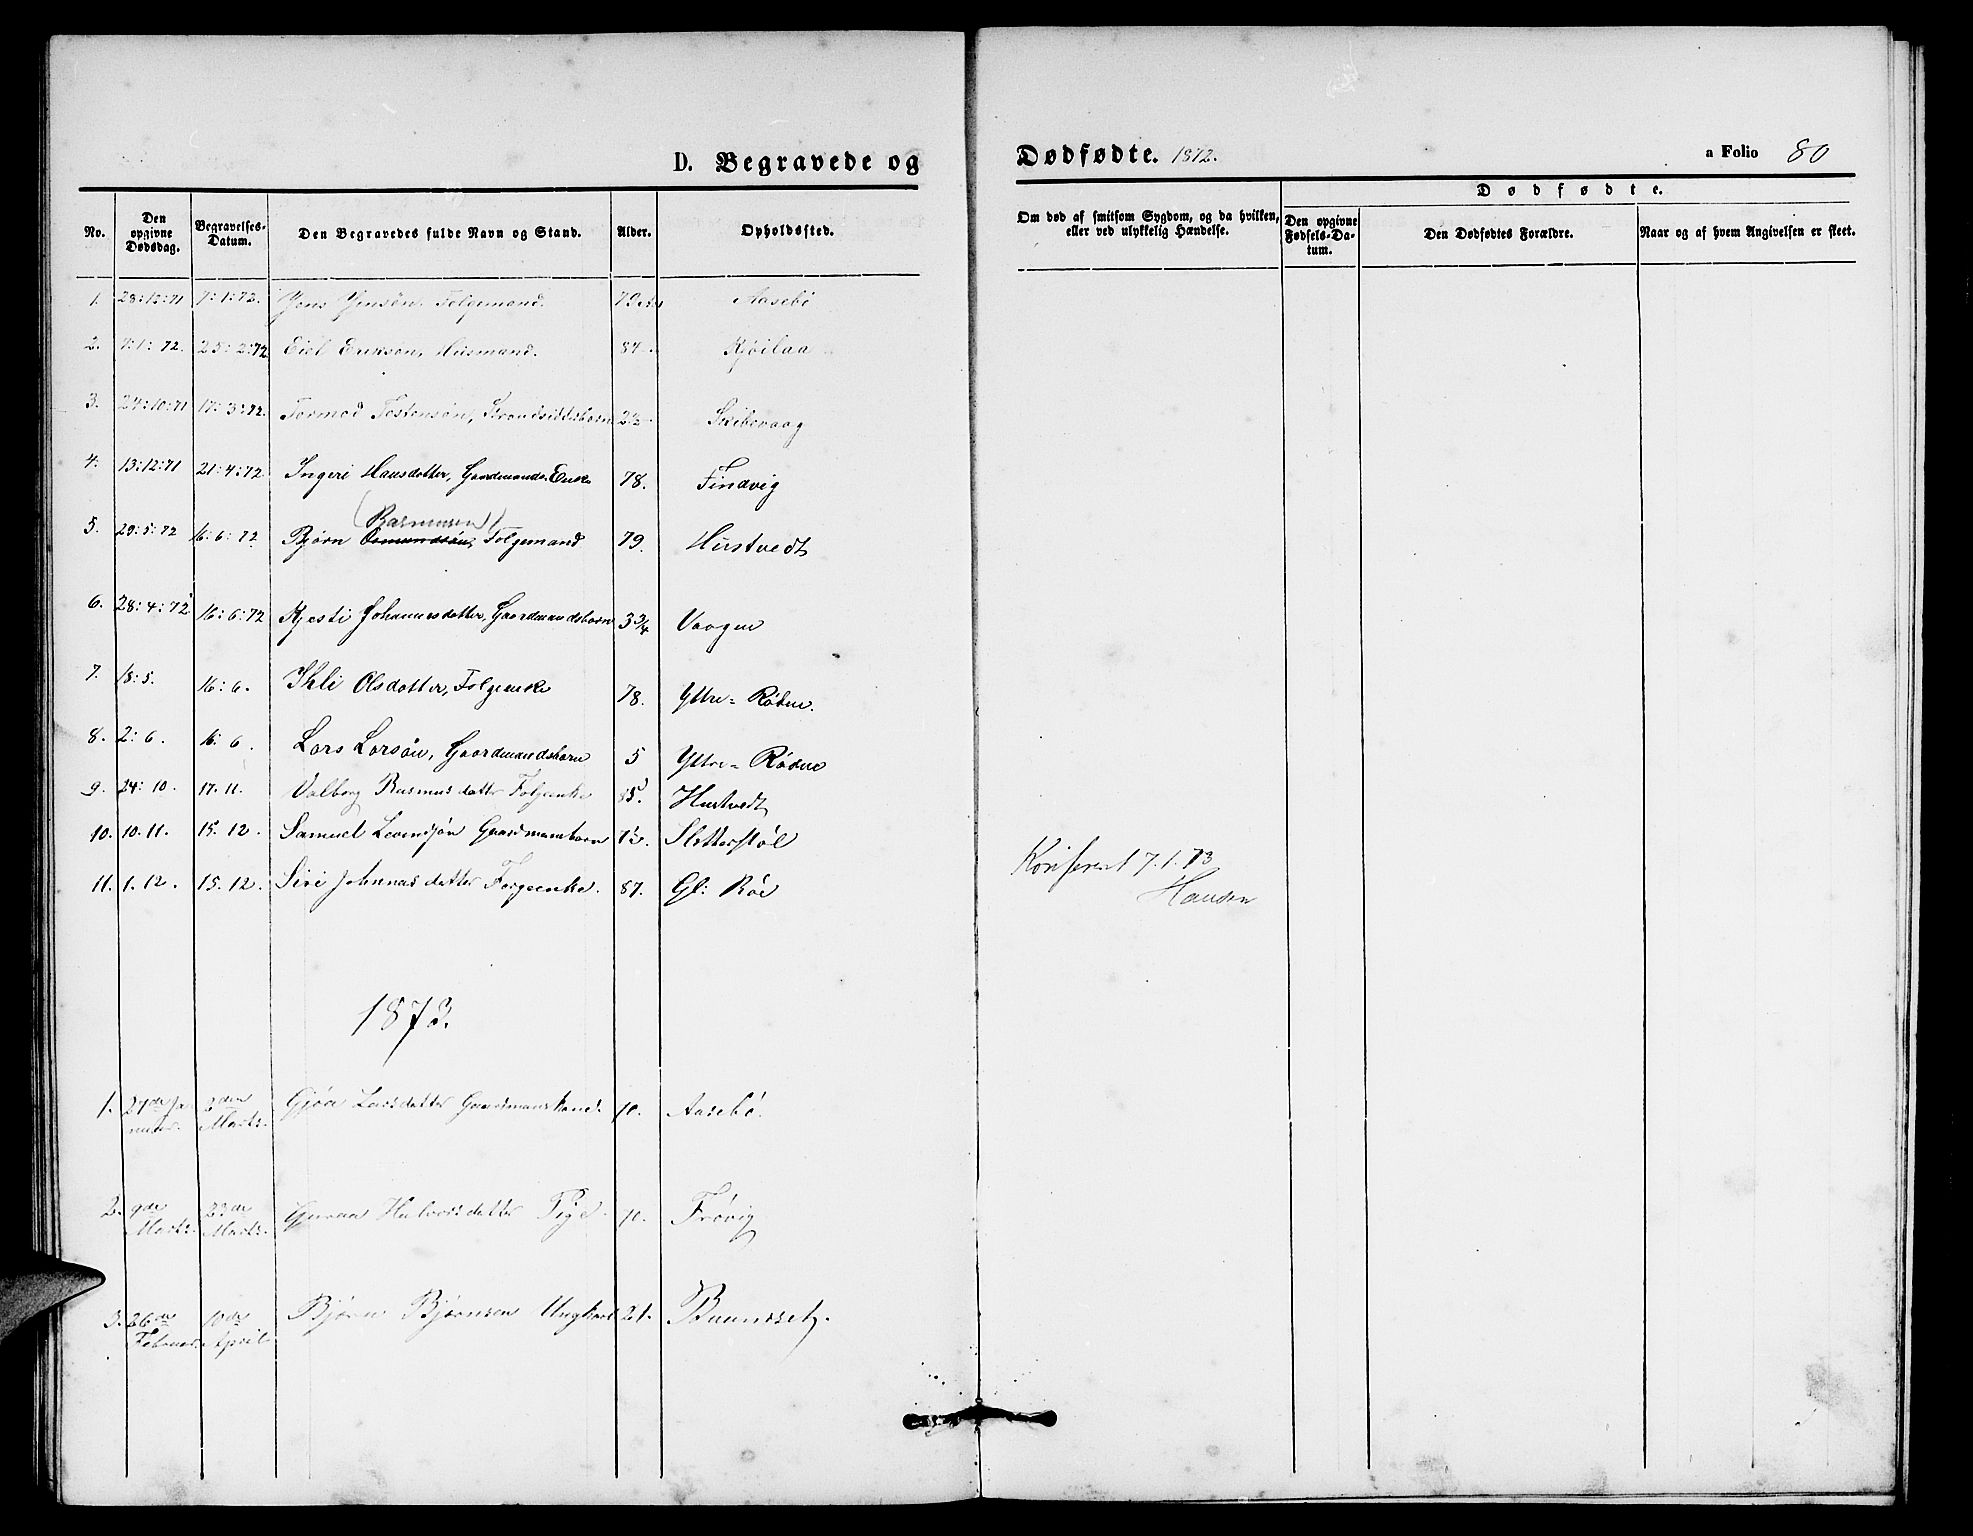 D. Begravede og Dødfødte. 1872. a Folio 80
No. Den opgivne Dødsdag. Begravelses-Datum. Den Begravedes fulde Navn og Stand. Alder. Opholdssted. Om død af smitsom Sygdom, og da hvilken, eller ved ulykkelig Hændelse. Dødfødte. Den opgivne Fødsels-Datum. Den Dødfødtes Forældre. Naar og af hvem Angivelsen er skeet.
1. 28:12:71 7:1:72. Jens Jensön, Folgemand. 79 Aasebö
2. 7:1:72. 25:2:72 Eiel Eriksön, Husmand. 84 Kjöilaa
3. 24:10:71 17:3:72. Tormod Tostensön, Strandsidderbarn Skibevaag
4. 13:12:71 21:4:72 Ingeri Hansdatter, Gaardmands Enke 78. Findvig
(Rasmusen)
5. 29:5:72 16:6:72 Bjørn Osmundsön, Folgemand 79. Hustvedt
6. 28:4:72 16:6:72 Kjesti Johannesdatter, Gaardmandsbarn 3 3/4 Vaagen
7. 18:5. 16:6. Ihli Olsdatter, Folgenke 78. Yttre=Rödne.
8. 2:6. 16:6. Lars Larsön, Gaardmandsbarn 5 Yttre=Rödne
9. 24:10. 17.11. Valborg Rasmusdatter Folgenke 85. Hustvedt
10. 10.11. 15.12. Samuel Gaardmansbarn Slettestöl
11. 1.12. 15.12. Siri Johnnasdatter Folgeenke. 87. Gl: Röe
Konfereret 7.1.73
Hansen
1873.
1. 27de Januar. 2den Marts. Gjöa Larsdatter Gaardmanskone. Aasebö.
2. 9de Marts. 23de Marts. Guroa Halvorsdatter Pige. Frövig
3. 26de Februar. 10de April Björn Björnsen Ungkarl 21. Buundset.